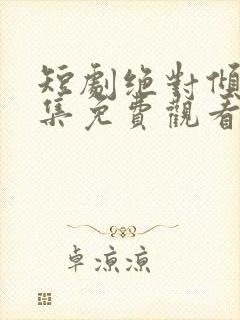 短劇絶對傾
集免費觀看
卓涼涼